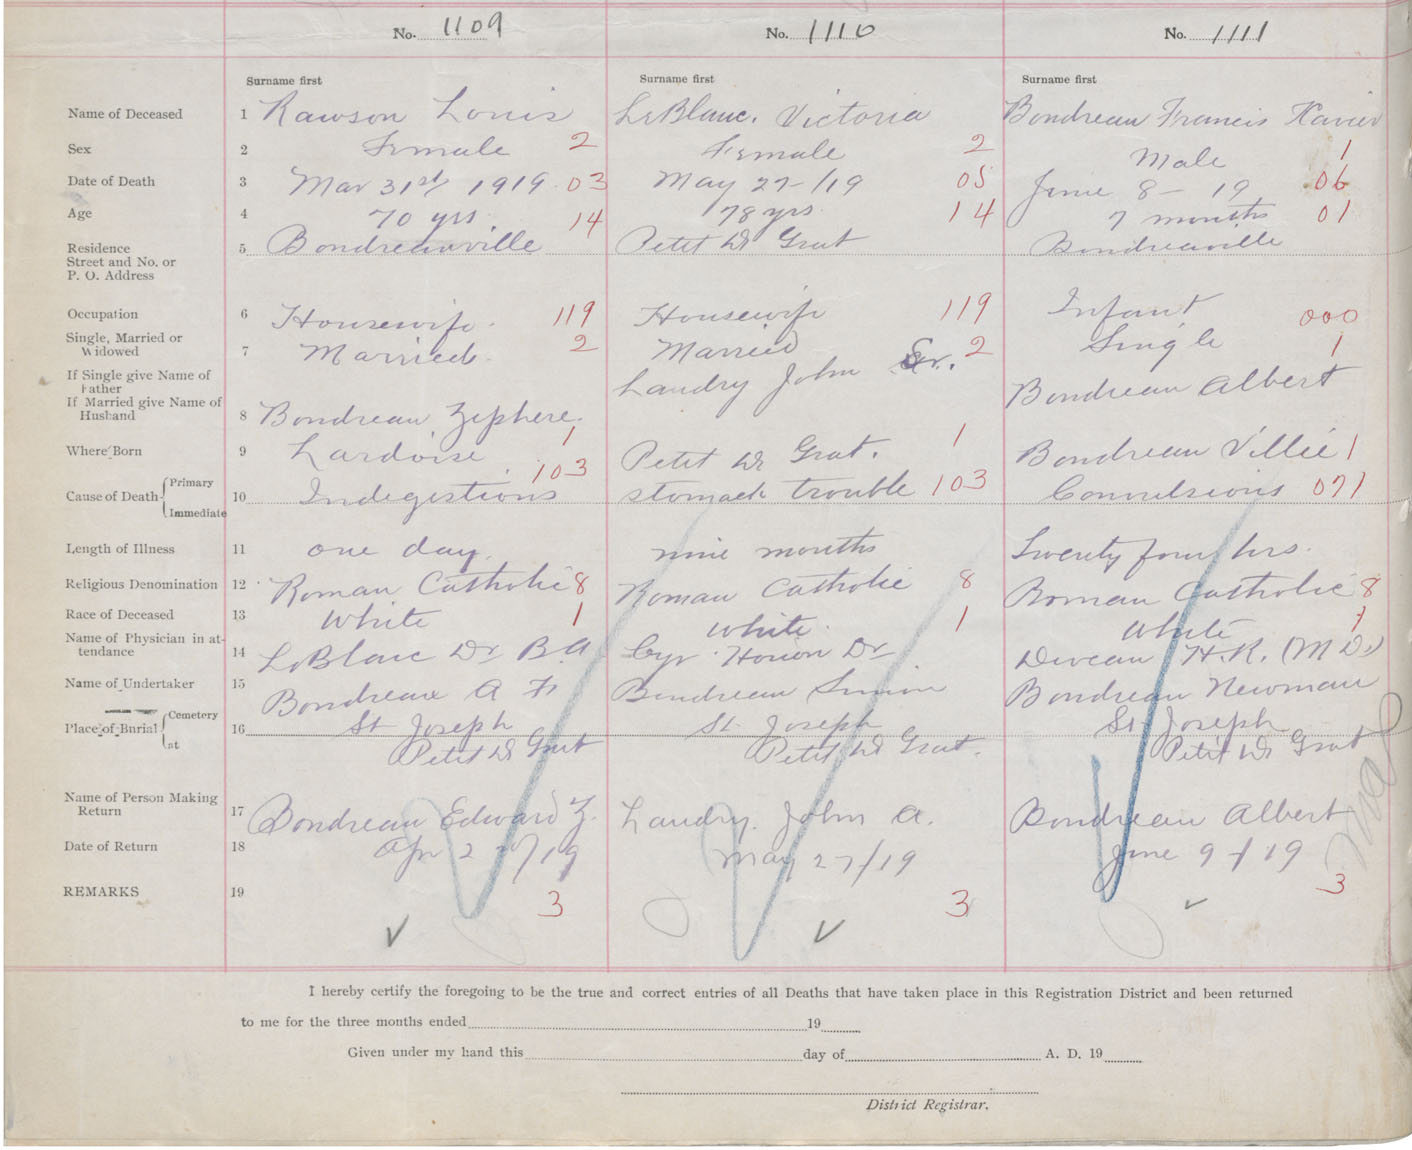 No. 1109 No. 1110 No. 1111
Surname first Surname first Surname first
Name of Deceased 1 Rawson Louis LeBlanc, Victoria Boudreau Francis Xavier
Sex 2 Female 2 Female 2 Male 1
Date of Death 3 Mar 31st 1919 03 May 27-/19 05 June 8 - 19 06
Age 4 70 yrs 14 78 yrs 14 7 months 01
Residence 5 Boudreauville Petit De Grat Boudreauville
Street and No. or
P. O. Address
Occupation 6 Housewife 119 Housewife 119 Infant 000
Single, Married or
Widowed 7 Married 2 Married 2 Single 1
If Single give Name of
Father
If Married give Name of
Husband 8 Boudreau Zephere Landry John Sr. Boudreau Albert
Where Born 9 Lardoise 1 Petit De Grat. 1 Boudreau Villie 1
Cause of Death Primary
10 Indigestions 103 stomach trouble 103 Convulsions 071
Immediate
Length of Illness 11 one day nine months Twenty four hrs.
Religious Denomination 12 Roman Catholic 8 Roman Catholic 8 Roman Catholic 8
Race of Deceased 13 White 1 White 1 White 1
Name of Physician in at-
tendance 14 LeBlanc Dr B.A. Cyr Honon Dr H.R. (M D.)
Name of Undertaker 15 Boudreaux A Boudreau Simon Boudreau Newman
Place of Burial Cemetery 16 St Joseph St. Joseph St Joseph
at Petit De Grat Petit De Grat. Petit De Grat
Name of Person Making
Return 17 Boudreau Edward Z. Landry John A. Boudreau Albert
Date of Return 18 Apr 2nd/19 May 27/19 June 9-/19
REMARKS 19 3 3 3
I hereby certify the foregoing to be the true and correct entries of all Deaths that have taken place in this Registration District and been returned
to me for the three months ended 19
Given under my hand this day of A. D. 19
District Registrar.